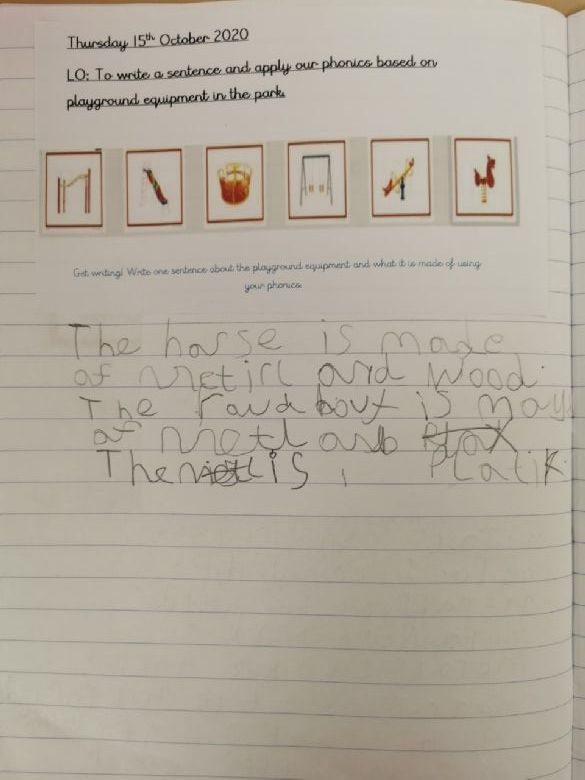 Thursday 15th October 2020
LO: To write a sentence and apply our phonics based on
playground equipment in the park.
Get writing! Write one sentence about the playground equipment and what it is made of using
your phonics.
The horse is made
of metirl and wood.
The raudbout is may
of metl anb
The is Platik